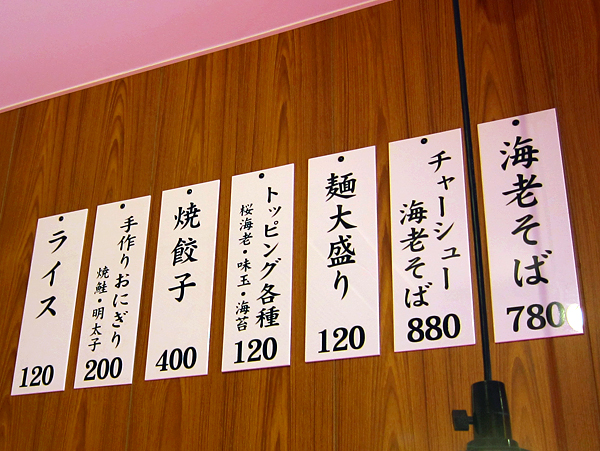 海老そば
780
チャーシュー
海老そば
880
麺大盛り
120
トッピング各種
桜海老・味玉・海苔
120
焼餃子
400
手作りおにぎり
焼鮭・明太子
200
ライス
120